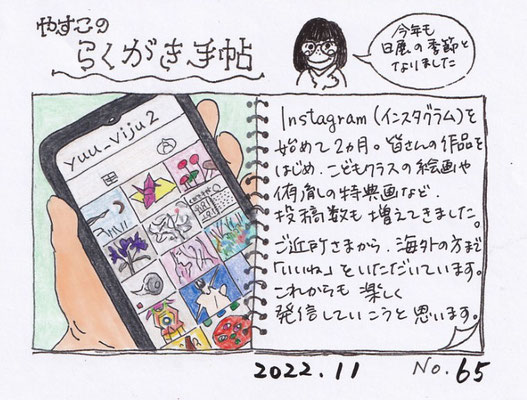 やすこの
らくがき手帖
今年も
日展の季節と
なりました
yuu_viju2
Instagram(インスタグラム)を
始めて2ヵ月。皆さんの作品を
はじめ、こどもクラスの絵画や
侑育しの特典画など、
投稿数も増えてきました。
ご近所さまから、海外の方まで
「いいね」をいただいています。
これからも楽しく
発信していこうと思います。
2022.11 No.65